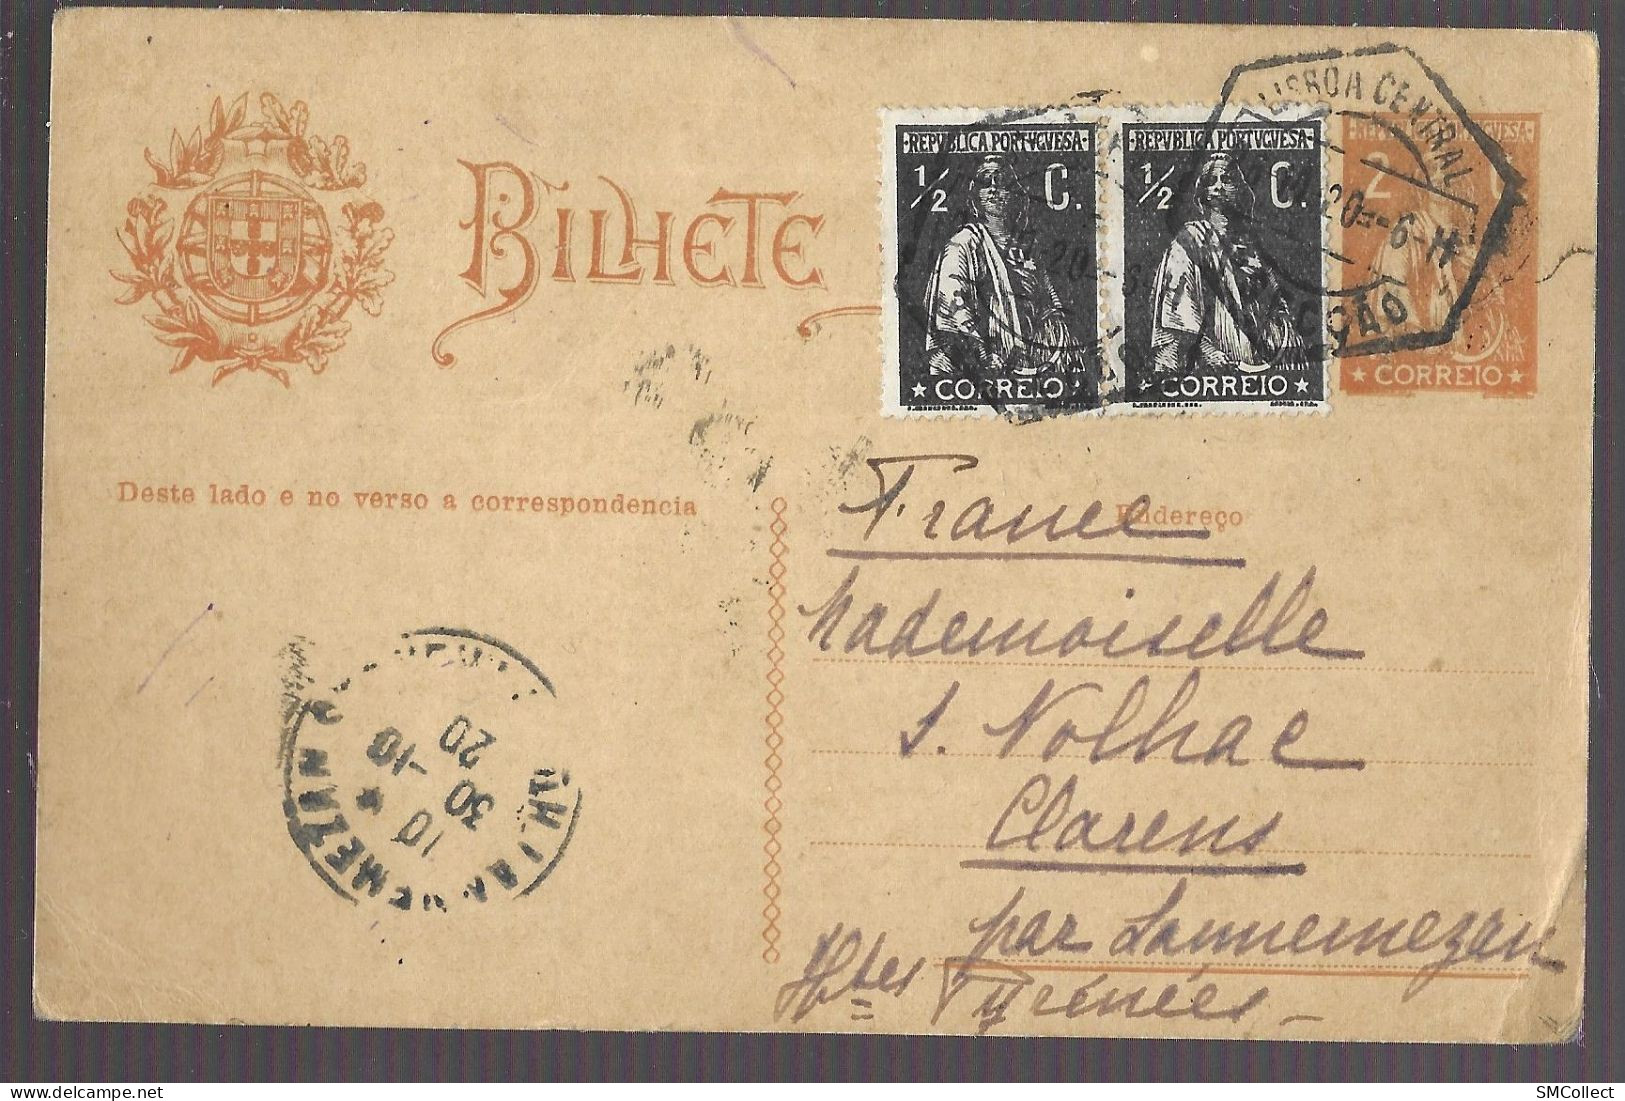 BILHETE
REPVBLICA PORTVGVESA
1/2 C.
CORREIO
REPVBLICA PORTVGVESA
1/2 C.
CORREIO
2
CORREIO
LISBOA CENTRAL
20 6-H
Deste lado e no verso a correspondencia
Endereço
France
Mademoiselle
S. Nolhac
Clarens
par Lannemezan
Htes Pyrénées
10 *
30 -10
20
SMCollect